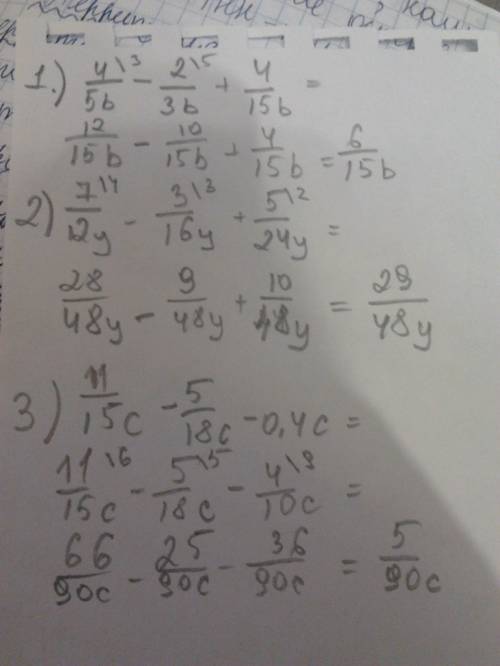 1.) 4\3/5b - 2\5/3b + 4/15b =
12/15b - 10/15b + 4/15b = 6/15b
2) 7\4/12y - 3\3/16y + 5\2/24y =
28/48y - 9/48y + 10/48y = 29/48y
3) 11/15c - 5/18c - 0,4c =
11\6/15c - 5\5/18c - 4\9/10c =
66/90c - 25/90c - 36/90c = 5/90c